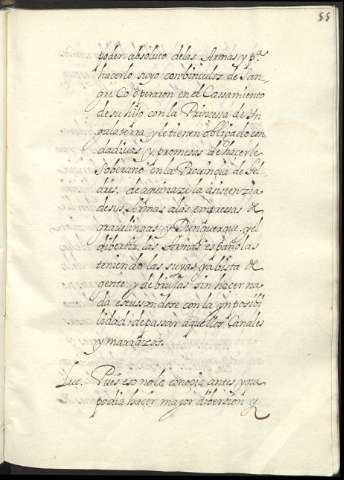 55
poder absoluto delas Armas y pa.
hacerlo suyo conbinculos de San-
gre Co operzion en el Casamiento
desu hijo con la Princesa de In-
galaterra, y le tienen obligado con
dadivas, y promesas de hacerle
Soberano en la Provincia de
de aqui naze la asistenzia
desus Armas alas empresas de
gravelingas, y Dunquerque, y el
dibertir las Armas españolas
teniendo las suyas ya bista de
gente y de brujas sin hacer na-
da escusandose con la ymposibi-
lidad de passar aquellos Canales
y marazos.
Luc. Pues eso no la conozia antes, y que
podia hacer mayor dibersion y